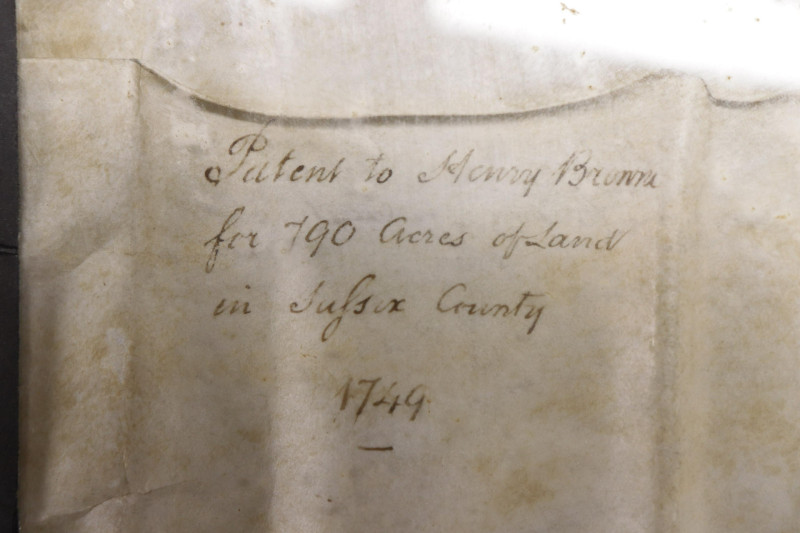 Patent to Henry Browne
for 790 Acres of Land
in Sussex County
1749